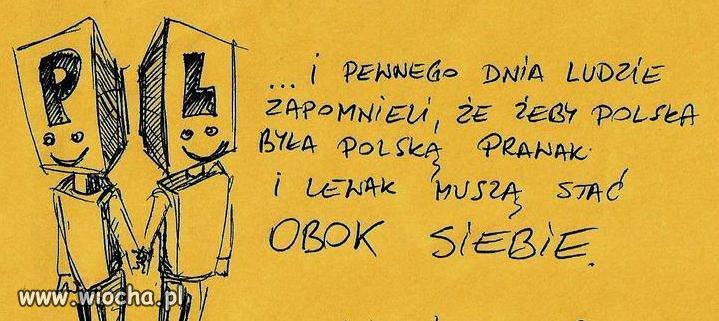 P L
...I PEWNEGO DNIA LUDZIE
ZAPOMNIELI, ŻE ŻEBY POLSKA
BYŁA POLSKĄ PRAWAK
I LEWAK MUSZĄ STAĆ
OBOK SIEBIE.
www.wiocha.pl